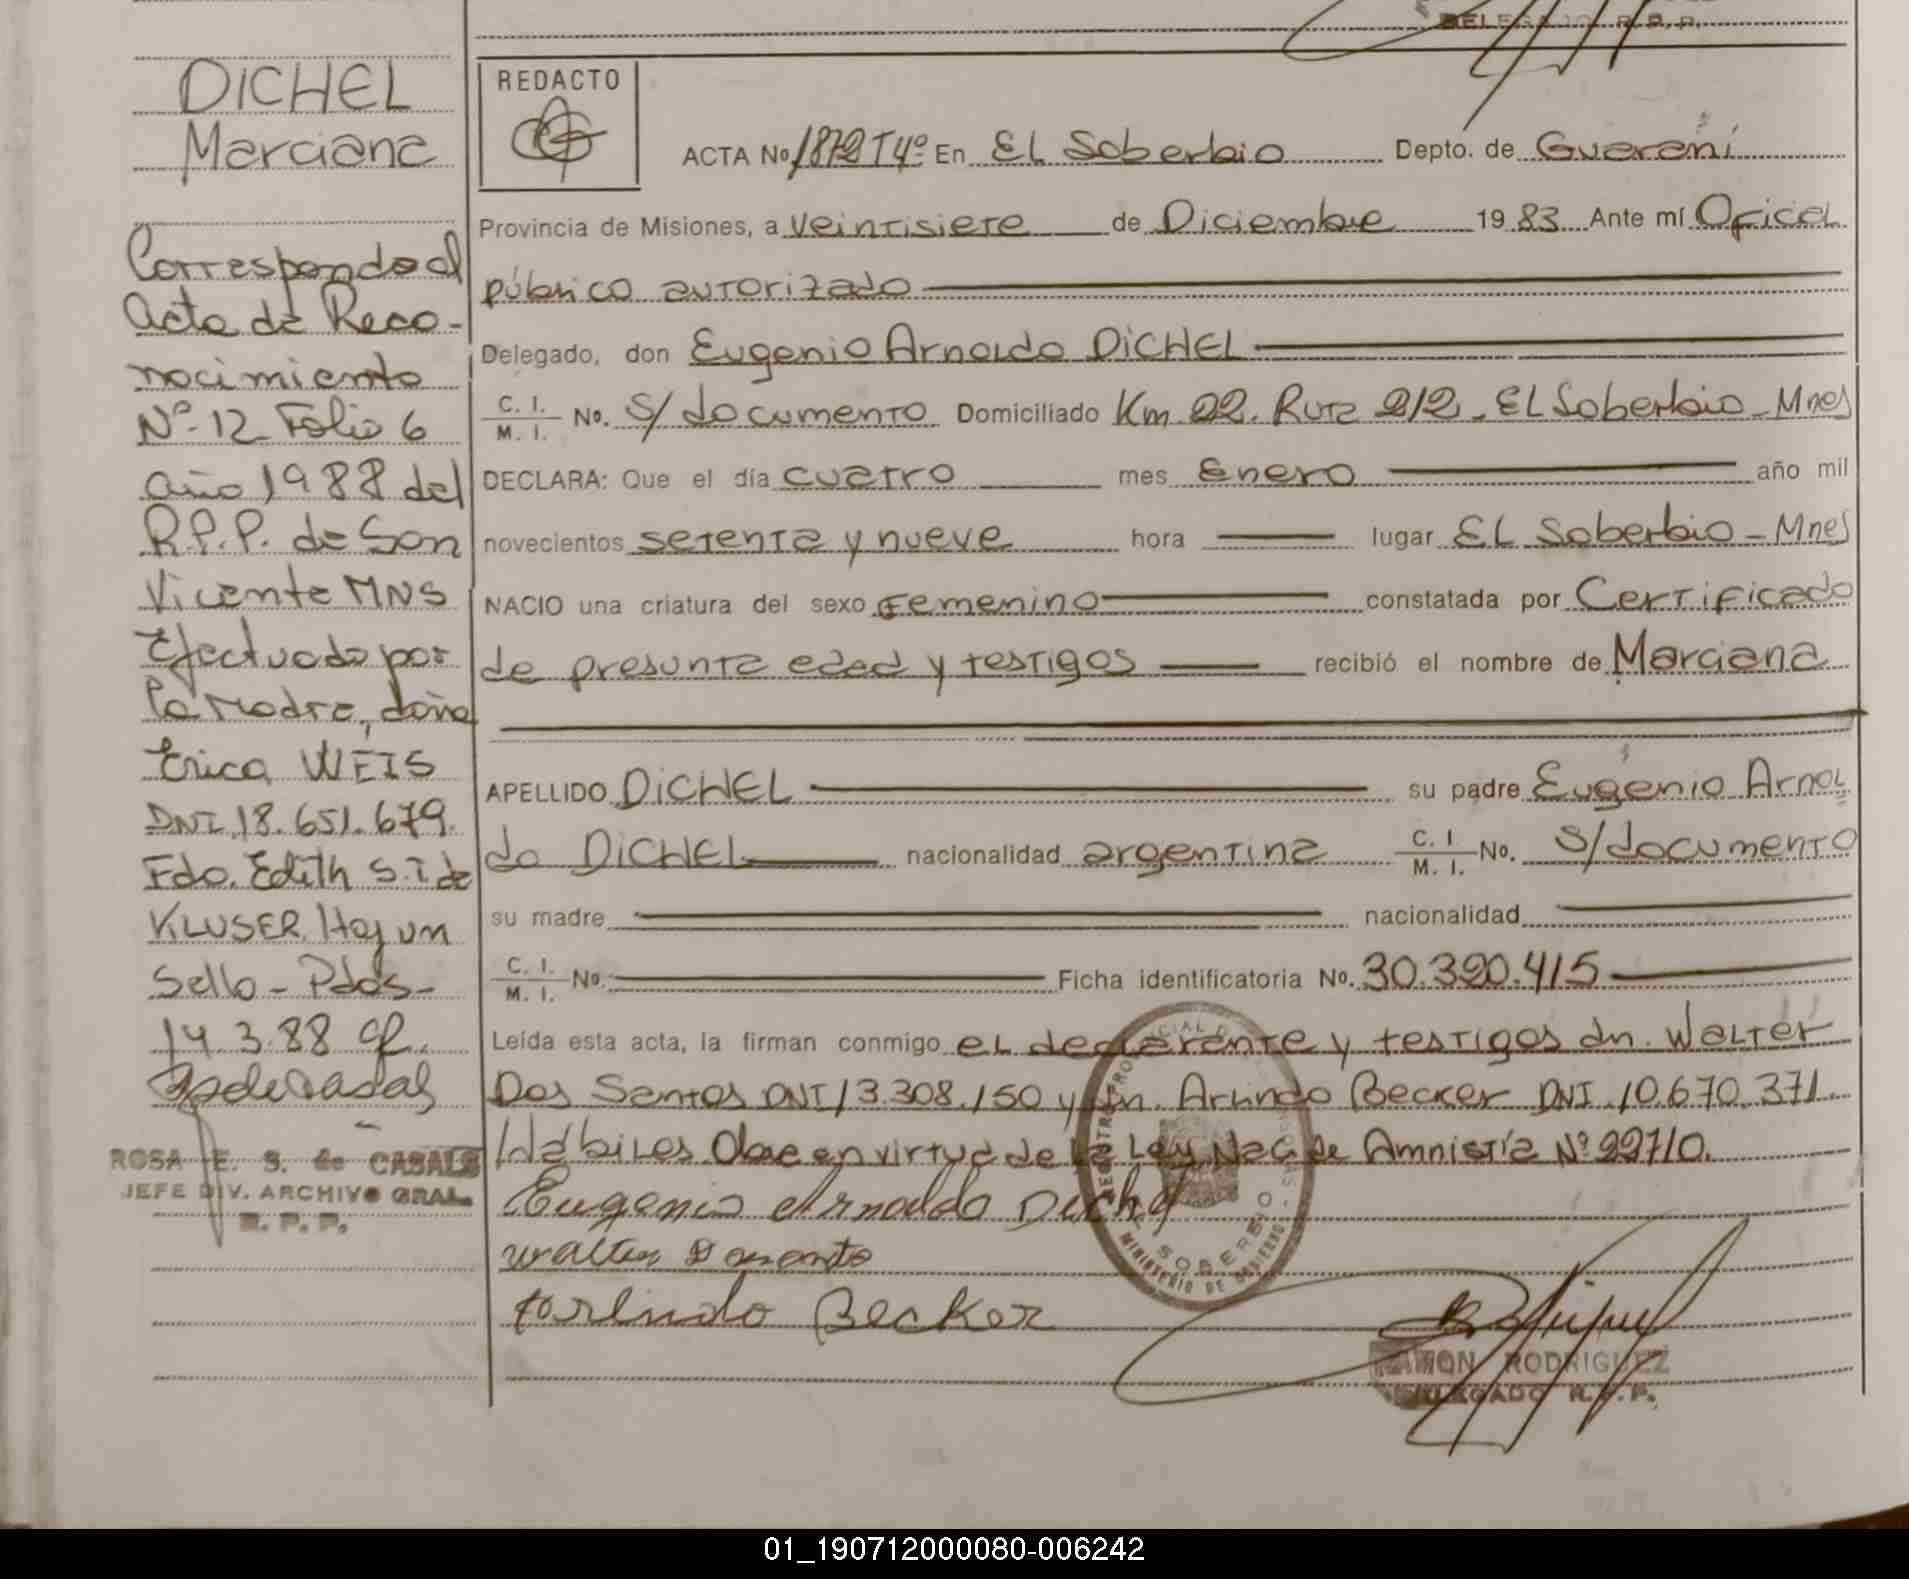 DELEGADO R.P.P.
DICHEL
Marciana
Corresponde al
Acta de Reco-
nocimiento
Nº 12 Folio 6
año 1988 del
R.P.P. de San
Vicente MNS
Efectuado por
la Madre, doña
Erica WEIS
DNI 18.651.679.
Fdo. Edith S.T de
KLUSER. Hay un
Sello - Pdas-
14.3.88
ROSA E. S. de CASALS
JEFE DIV. ARCHIVO GRAL.
R. P. P.
REDACTO
ACTA No 1872 T4º En EL Soberbio Depto. de Guaraní
Provincia de Misiones, a veintisiete de Diciembre 1983 Ante mí Oficial
público autorizado
Delegado, don Eugenio Arnoldo DICHEL
C. I. / M. I. No. S/documento Domiciliado Km. 22. Ruta 212. EL Soberbio - Mnes
DECLARA: Que el día cuatro mes Enero año mil
novecientos setenta y nueve hora lugar EL Soberbio - Mnes
NACIO una criatura del sexo femenino constatada por Certificado
de presunta edad y testigos recibió el nombre de Marciana
APELLIDO DICHEL su padre Eugenio Arnol
do DICHEL nacionalidad argentina C. I. / M. I. No. S/documento
su madre nacionalidad
C. I. / M. I. No. Ficha identificatoria No. 30.320.415
Leída esta acta, la firman conmigo el declarante y testigos dn. Walter
Dos Santos DNI 13.308.150 y dn. Arlindo Becker DNI 10.670.371.
Hábiles Obse en virtud de la Ley Nac de Amnistía Nº 22710.
Eugenio Arnoldo Dichel
Walter
Arlindo Becker
SOBERBIO
MINISTERIO DE GOBIERNO
RAMON RODRIGUEZ
DELEGADO R.P.P.
01_190712000080-006242